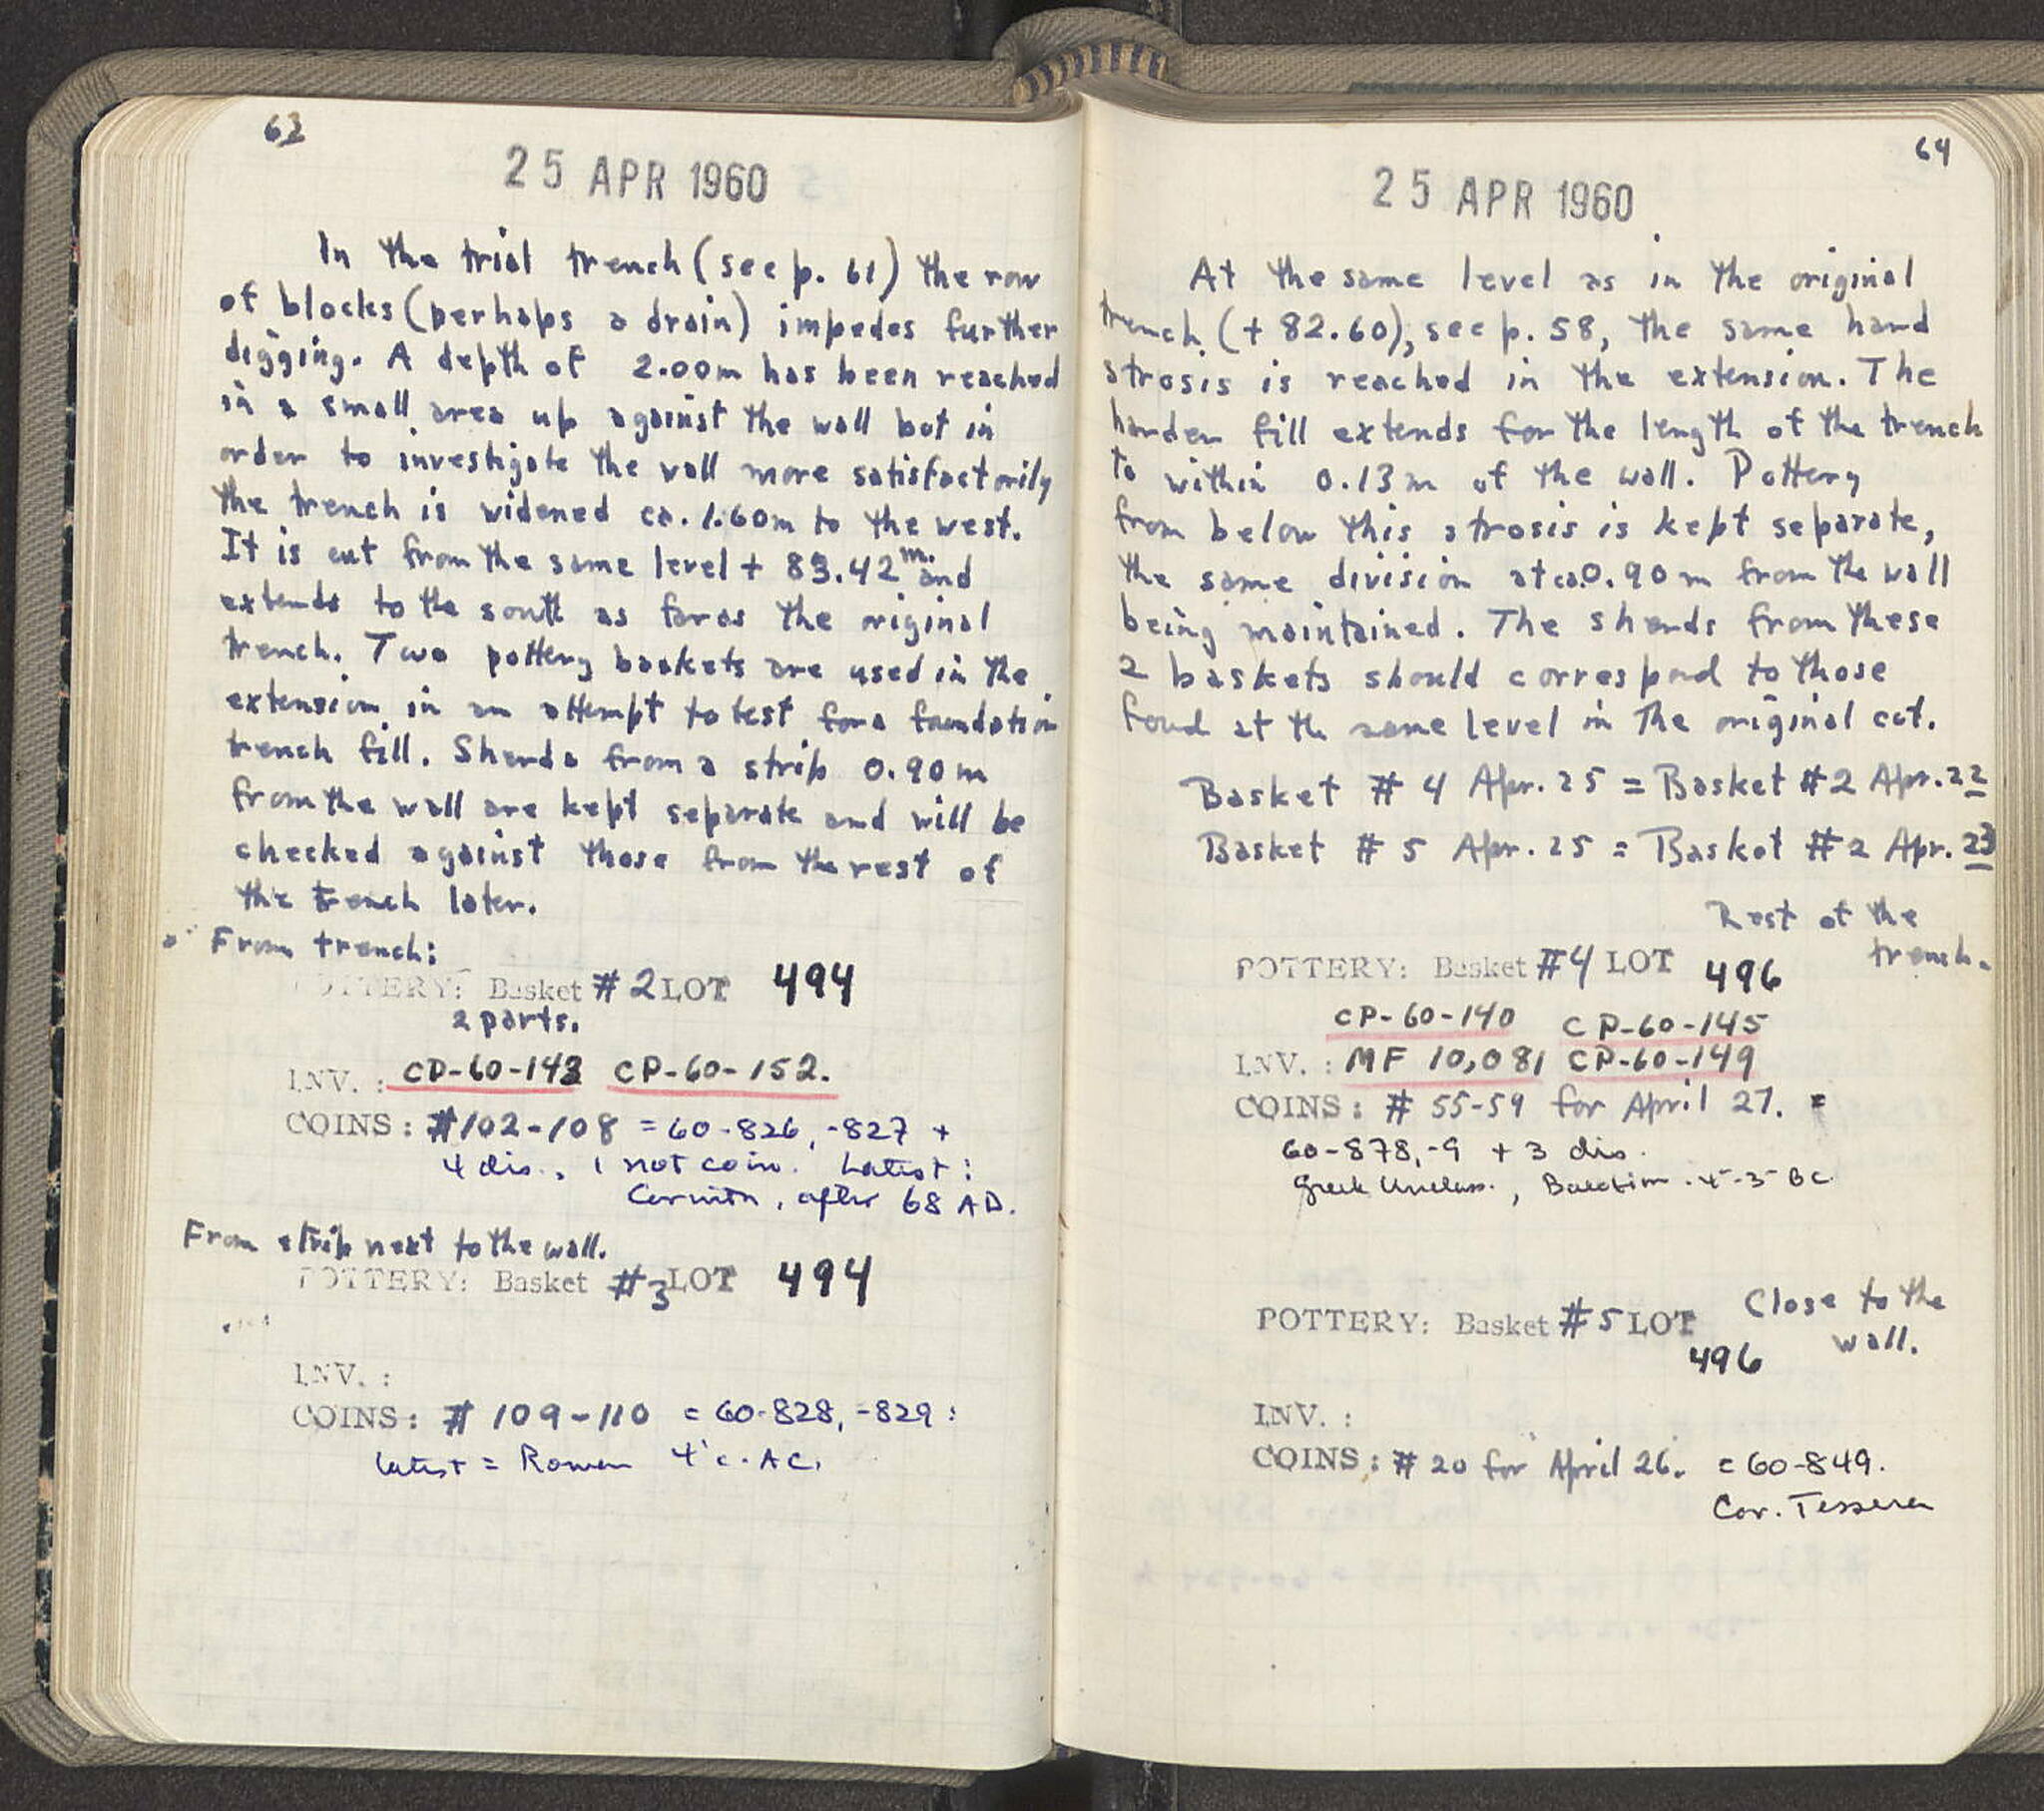 63
25 APR 1960
In the trial trench (see p. 61) the row
of blocks (perhaps a drain) impedes further
digging. A depth of 2.00m has been reached
in a small area up against the wall but in
order to investigate the wall more satisfactorily
the trench is widened ca. 1.60m to the west.
It is cut from the same level + 83.42 m. and
extends to the south as far as the original
trench. Two pottery baskets are used in the
extension in an attempt to test for a foundation
trench fill. Sherds from a strip 0.90m
from the wall are kept separate and will be
checked against those from the rest of
the trench later.
From trench:
POTTERY: Basket #2 LOT 494
2 parts.
INV.: CP-60-143 CP-60-152.
COINS: #102-108 = 60-826, -827 +
4 dis., 1 not coin. Latest:
Corinth, after 68 AD.
From strip next to the wall.
POTTERY: Basket #3 LOT 494
INV.:
COINS: # 109-110 = 60-828, -829:
latest = Roman 4' c. AC.
64
25 APR 1960
At the same level as in the original
trench (+ 82.60), see p. 58, the same hard
strosis is reached in the extension. The
harder fill extends for the length of the trench
to within 0.13m of the wall. Pottery
from below this strosis is kept separate,
the same division at ca. 0.90m from the wall
being maintained. The sherds from these
2 baskets should correspond to those
found at the same level in the original cut.
Basket # 4 Apr. 25 = Basket #2 Apr. 22
Basket # 5 Apr. 25 = Basket #2 Apr. 23
Rest of the
trench.
POTTERY: Basket #4 LOT 496
CP-60-140 CP-60-145
INV.: MF 10,081 CP-60-149
COINS: # 55-59 for April 27. =
60-878, -9 + 3 dis.
Greek Unclass., 4-3 BC
POTTERY: Basket #5 LOT Close to the
496 wall.
INV.:
COINS: # 20 for April 26. = 60-849.
Cor. Tessera